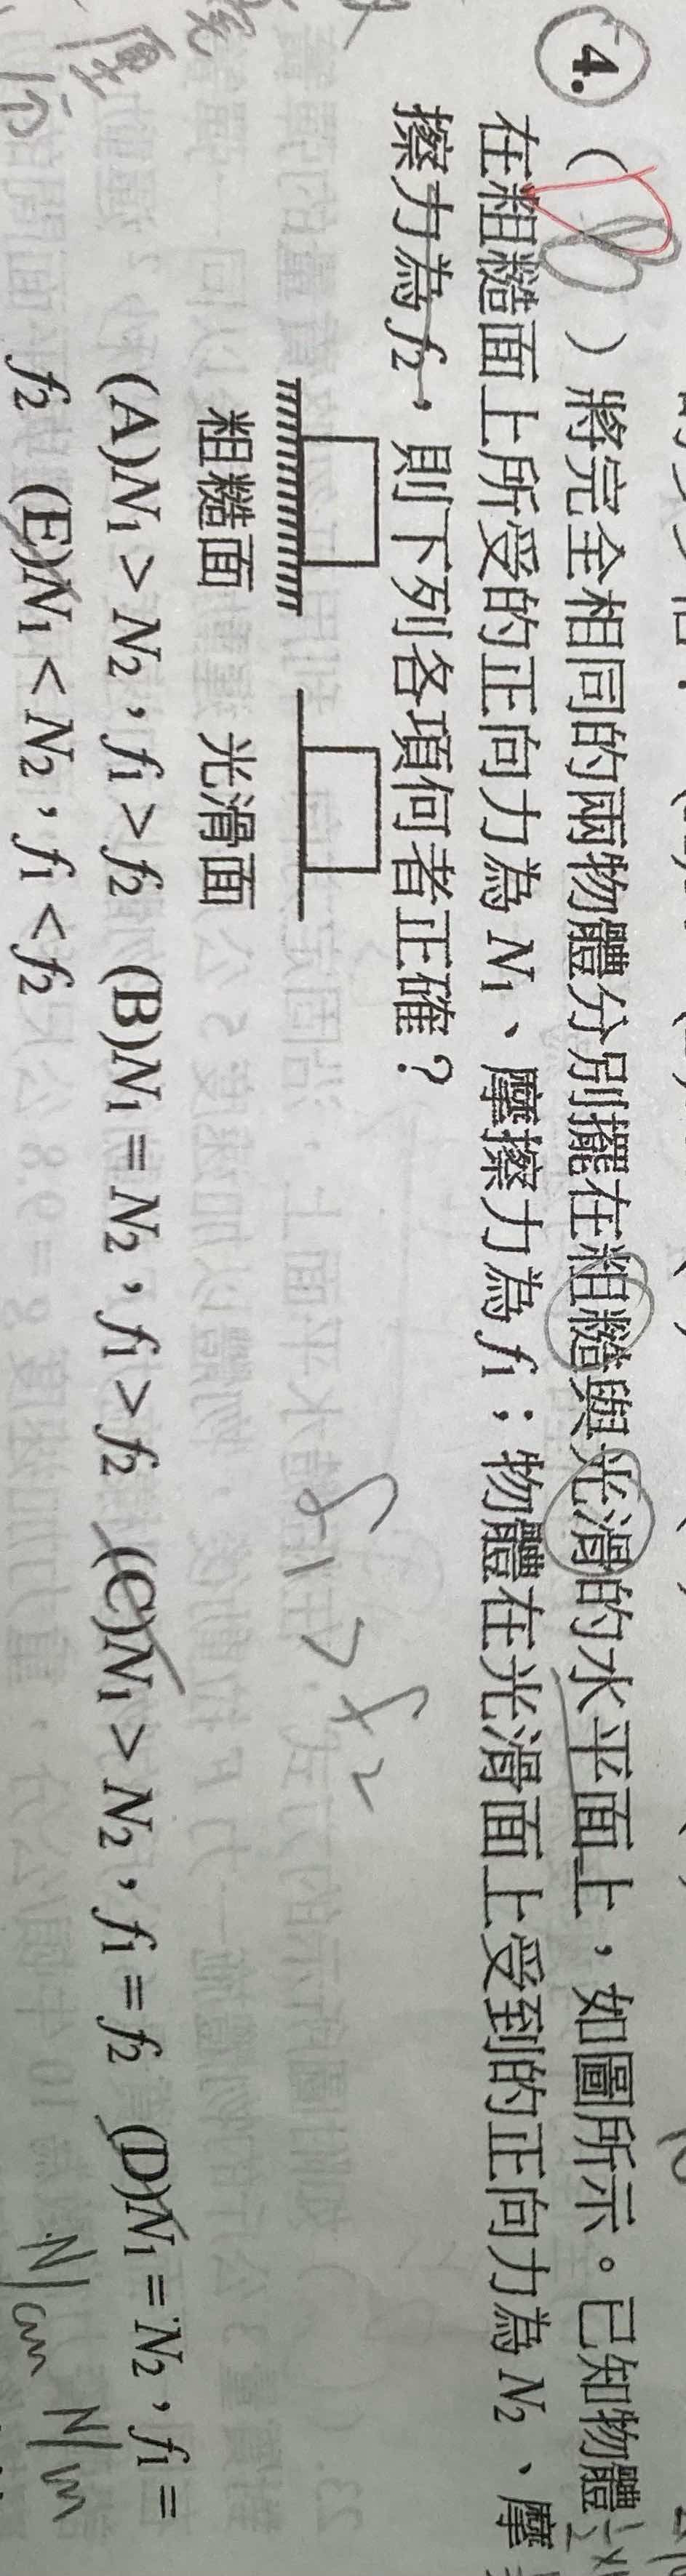 4. ( B ) 將完全相同的兩物體分別擺在粗糙與光滑的水平面上，如圖所示。已知物體
在粗糙面上所受的正向力為 N₁、摩擦力為 f₁；物體在光滑面上受到的正向力為 N₂、摩
擦力為 f₂，則下列各項何者正確？
f₁ > f₂
粗糙面 光滑面
(A)N₁ > N₂，f₁ > f₂ (B)N₁ = N₂，f₁ > f₂ (C)N₁ > N₂，f₁ = f₂ (D)N₁ = N₂，f₁ =
f₂ (E)N₁ < N₂，f₁ < f₂
N/cm N/m